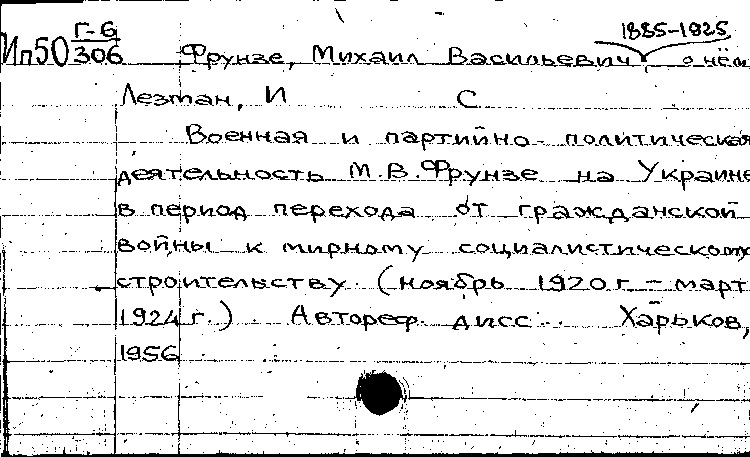 1885-1925
Ип50 Г-6
306 Фрунзе, Михаил Васильевич, о нём
Лезтан, И С
Военная и партийно-политическая
деятельность М.В.Фрунзе на Украине
в период перехода от гражданской
войны к мирному социалистическому
строительству. (ноябрь 1920 г. - март
1924 г.) Автореф. дисс. Харьков,
1956